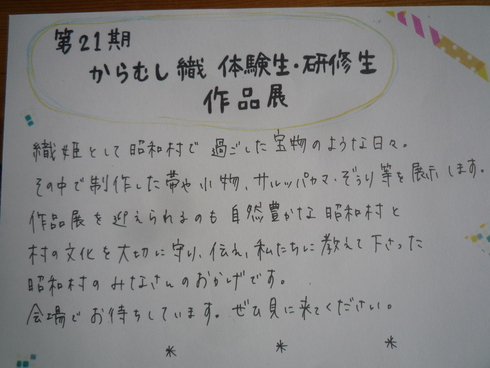 第21期
からむし織 体験生・研修生
作品展
織姫として昭和村で過ごした宝物のような日々。
その中で制作した帯や小物、サルッパカマ・ぞうり等を展示します。
作品展を迎えられるのも自然豊かな昭和村と
村の文化を大切に守り、伝え、私たちに教えて下さった
昭和村のみなさんのおかげです。
会場でお待ちしています。ぜひ見に来てください。
* * *